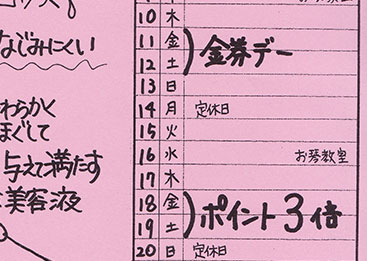 なじみにくい
わらかく
ほぐして
与えて満たす
美容液
10 木
11 金
12 土
金券デー
13 日
14 月 定休日
15 火
16 水 お琴教室
17 木
18 金
19 土
ポイント3倍
20 日 定休日